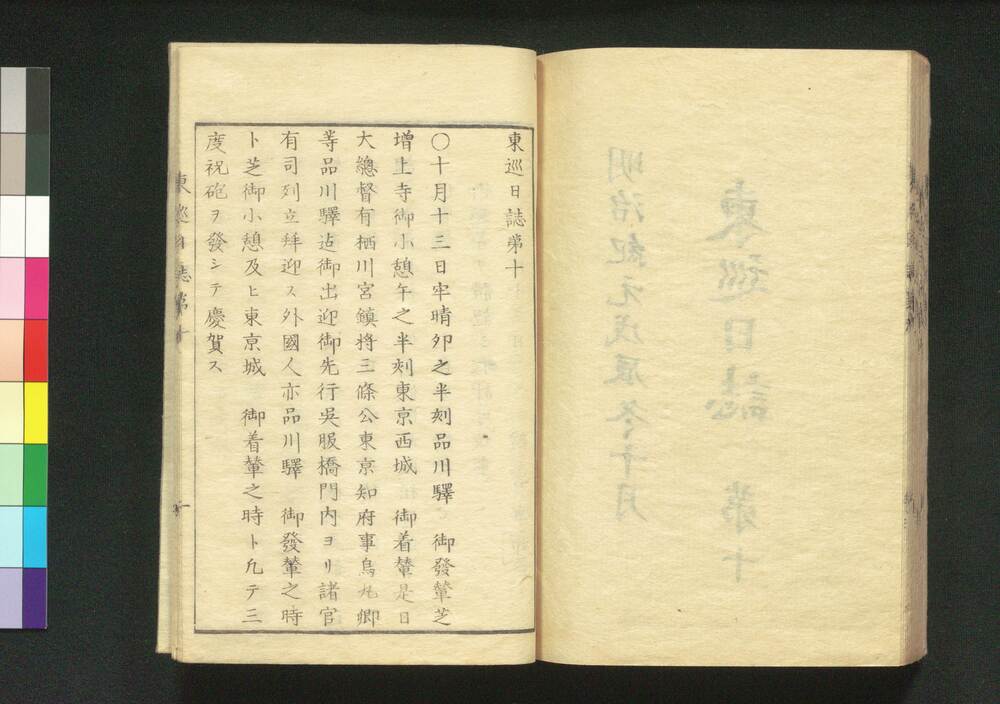 東巡日誌第十
○十月十三日牢晴夘之半刻品川驛 御發輦芝
增上寺御小憩午之半刻東京西城 御着輦是日
大總督有栖川宮鎮將三條公東京知府事烏丸卿
等品川驛迠御出迎御先行吳服橋門内ヨリ諸官
有司列立拜迎ス外國人亦品川驛 御發輦之時
ト芝御小憩及ヒ東京城 御着輦之時ト凢テ三
度祝砲ヲ發シテ慶賀ス
東巡日誌第十